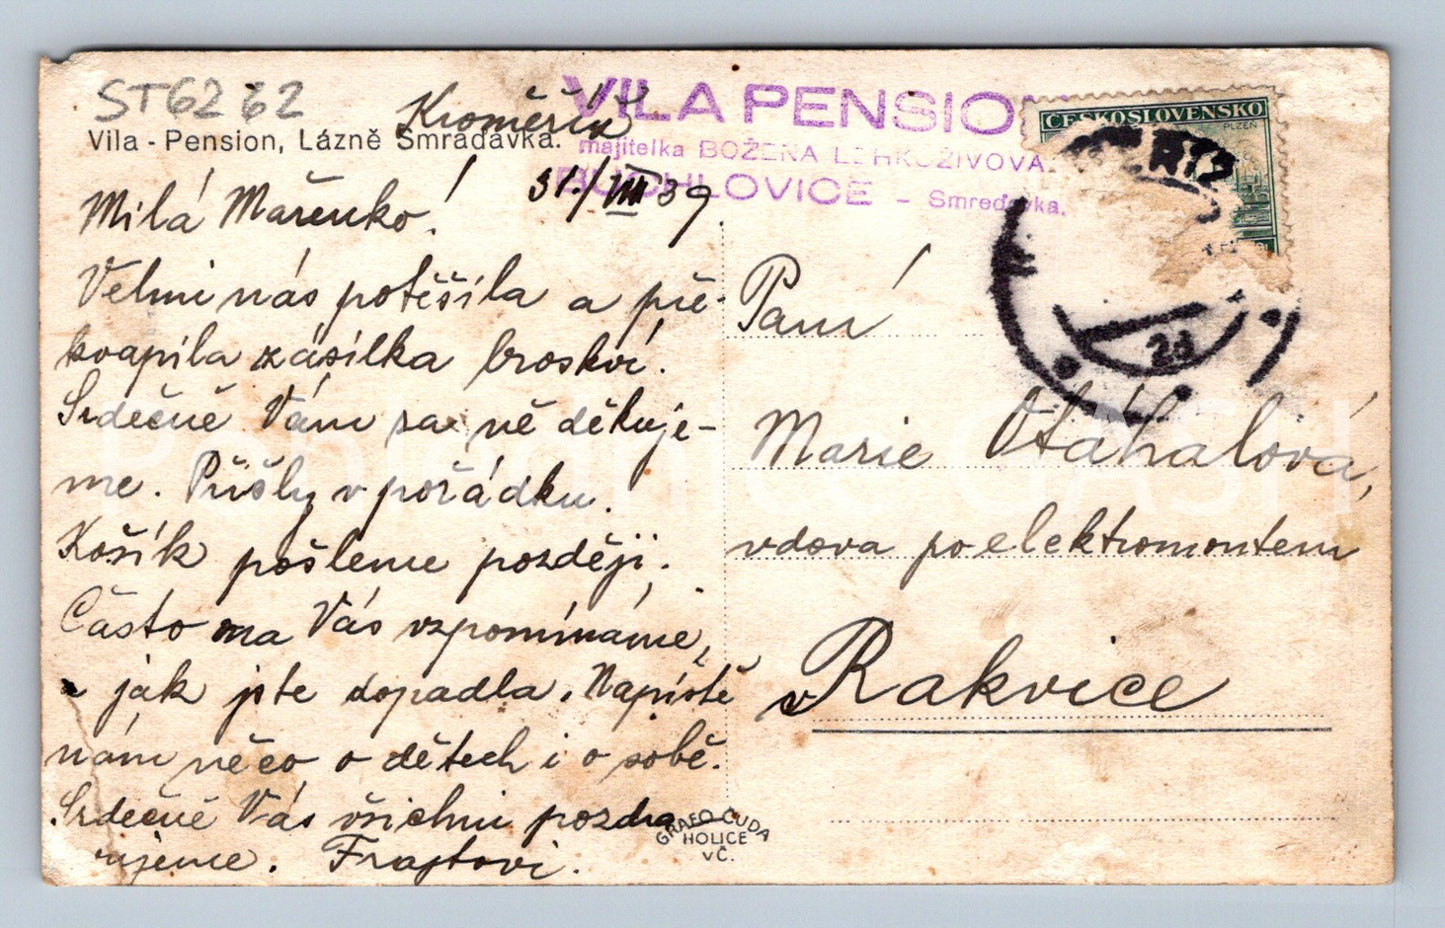 ST6262
Vila - Pension, Lázně Smraďavka.
Kroměříž
31./VIII 39.
VILA PENSIO
majitelka BOŽENA LEHKOŽIVOVA
BUCHLOVICE - Smreďavka.
ČESKOSLOVENSKO
PLZEŇ
Milá Mařenko!
Velmi nás potěšila a pře-
kvapila zásilka broskví.
Srdečně Vám za ně děkuje-
me. Přišly v pořádku.
Košík pošleme později.
Často na Vás vzpomínáme,
jak jste dopadla. Napište
nám něco o dětech i o sobě.
Srdečně Vás všichni pozdra
vujeme. Fraptovi.
Paní
Marie Otáhalová,
vdova po elektromontéru
v Rakvice
GRAFO ČUDA
HOLICE
VČ.